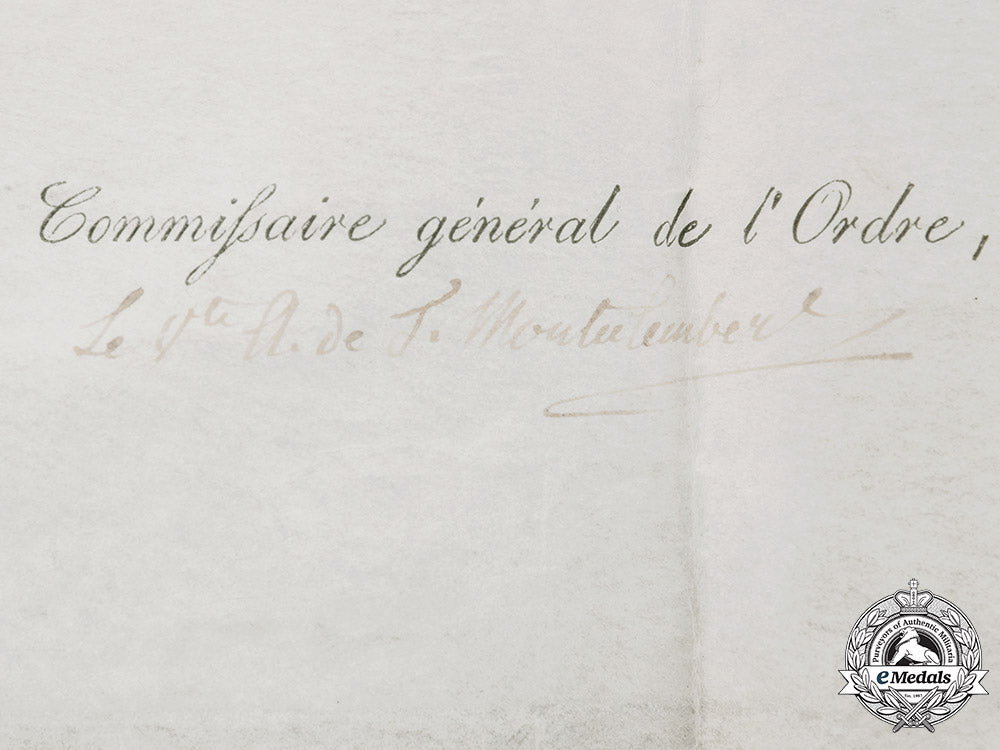 Commiſsaire général de l'Ordre,
Le Vte A. de T. Montalembert
Purveyors of Authentic Militaria
eMedals
Est. 1967